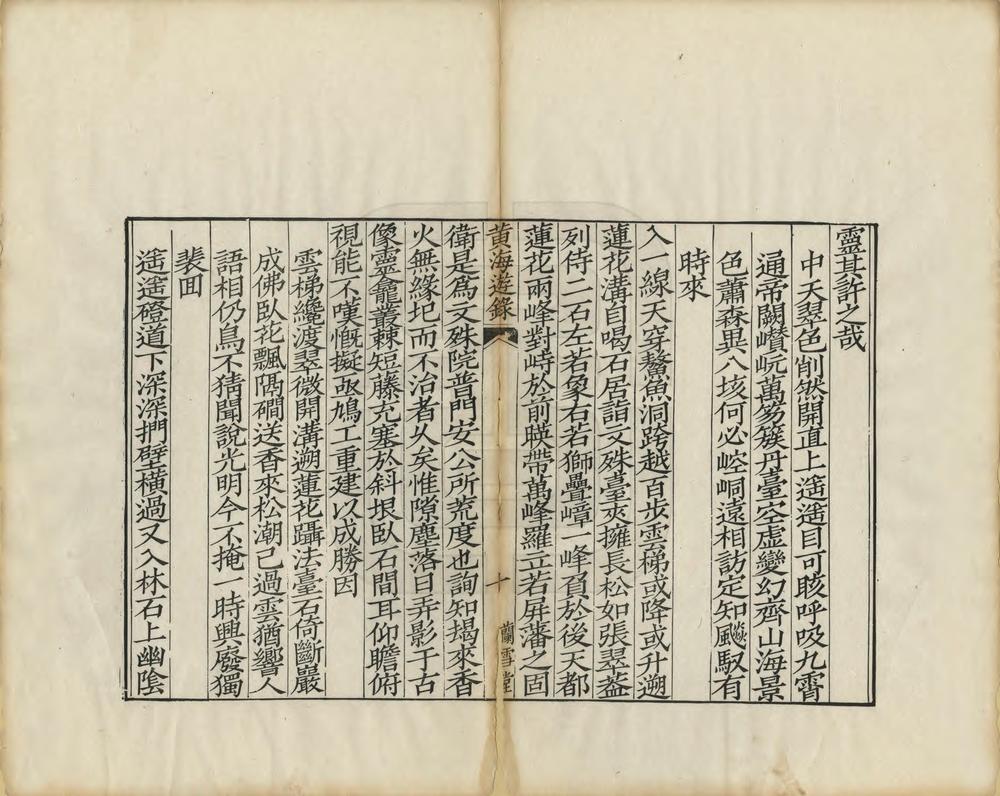 靈其許之哉
中天翠色削然開直上遙遙目可眩呼吸九霄
通帝闕巑岏萬笏簇丹臺空虛變幻齊山海景
色蕭森異八垓何必崆峒遠相訪定知飈馭有
時來
入一線天穿鰲魚洞跨越百步雲梯或降或升遡
蓮花溝自喝石居詣文殊臺夾擁長松如張翠蓋
列侍二石左若象右若獅疊嶂一峰負於後天都
蓮花兩峰對峙於前暎帶萬峰羅立若屏藩之固
黄海遊錄
十
蘭雪堂
衛是爲文殊院普門安公所荒度也詢知朅來香
火無緣圮而不治者久矣惟隙塵落日弄影于古
像靈龕叢棘短藤充塞於斜垠臥石間耳仰瞻俯
視能不嘆慨擬亟鳩工重建以成勝因
雲梯纔渡翠微開溝遡蓮花躡法臺石倚斷巖
成佛臥花飄隔磵送香來松潮已過雲猶響人
語相仍鳥不猜聞說光明今不掩一時興廢獨
裴回
遙遙磴道下深深捫壁橫過又入林石上幽陰